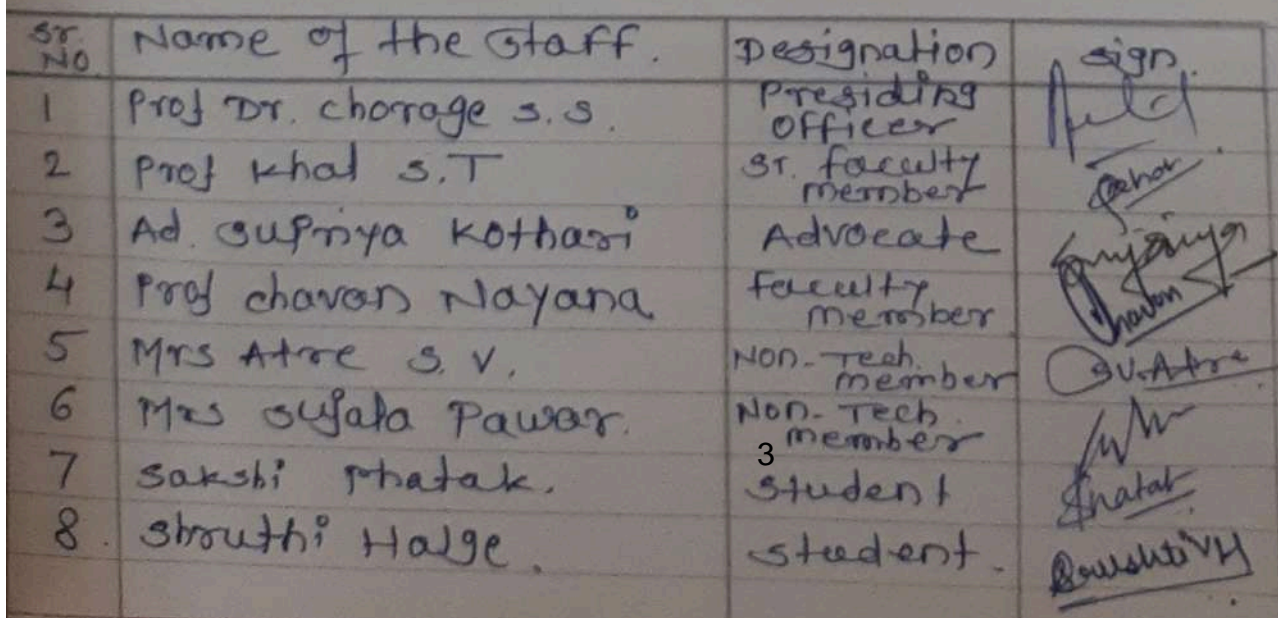 Sr. NO Name of the Staff. Designation sign.
1 Prof Dr. Chorage S.S. Presiding Officer
2 Prof Khal S.T Sr. faculty member
3 Ad. Supriya Kothari Advocate
4 Prof chavan Nayana faculty member Chavan
5 Mrs Atre S.V. Non-Tech. member SV.Atre
6 Mrs Sujata Pawar. Non-Tech. member
3
7 Sakshi Phatak. Student Phatak
8. Shruthi Halge. Student.